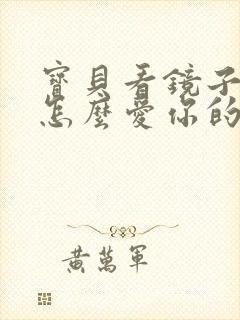 寶貝看鏡子
怎麼愛你的
黃萬軍